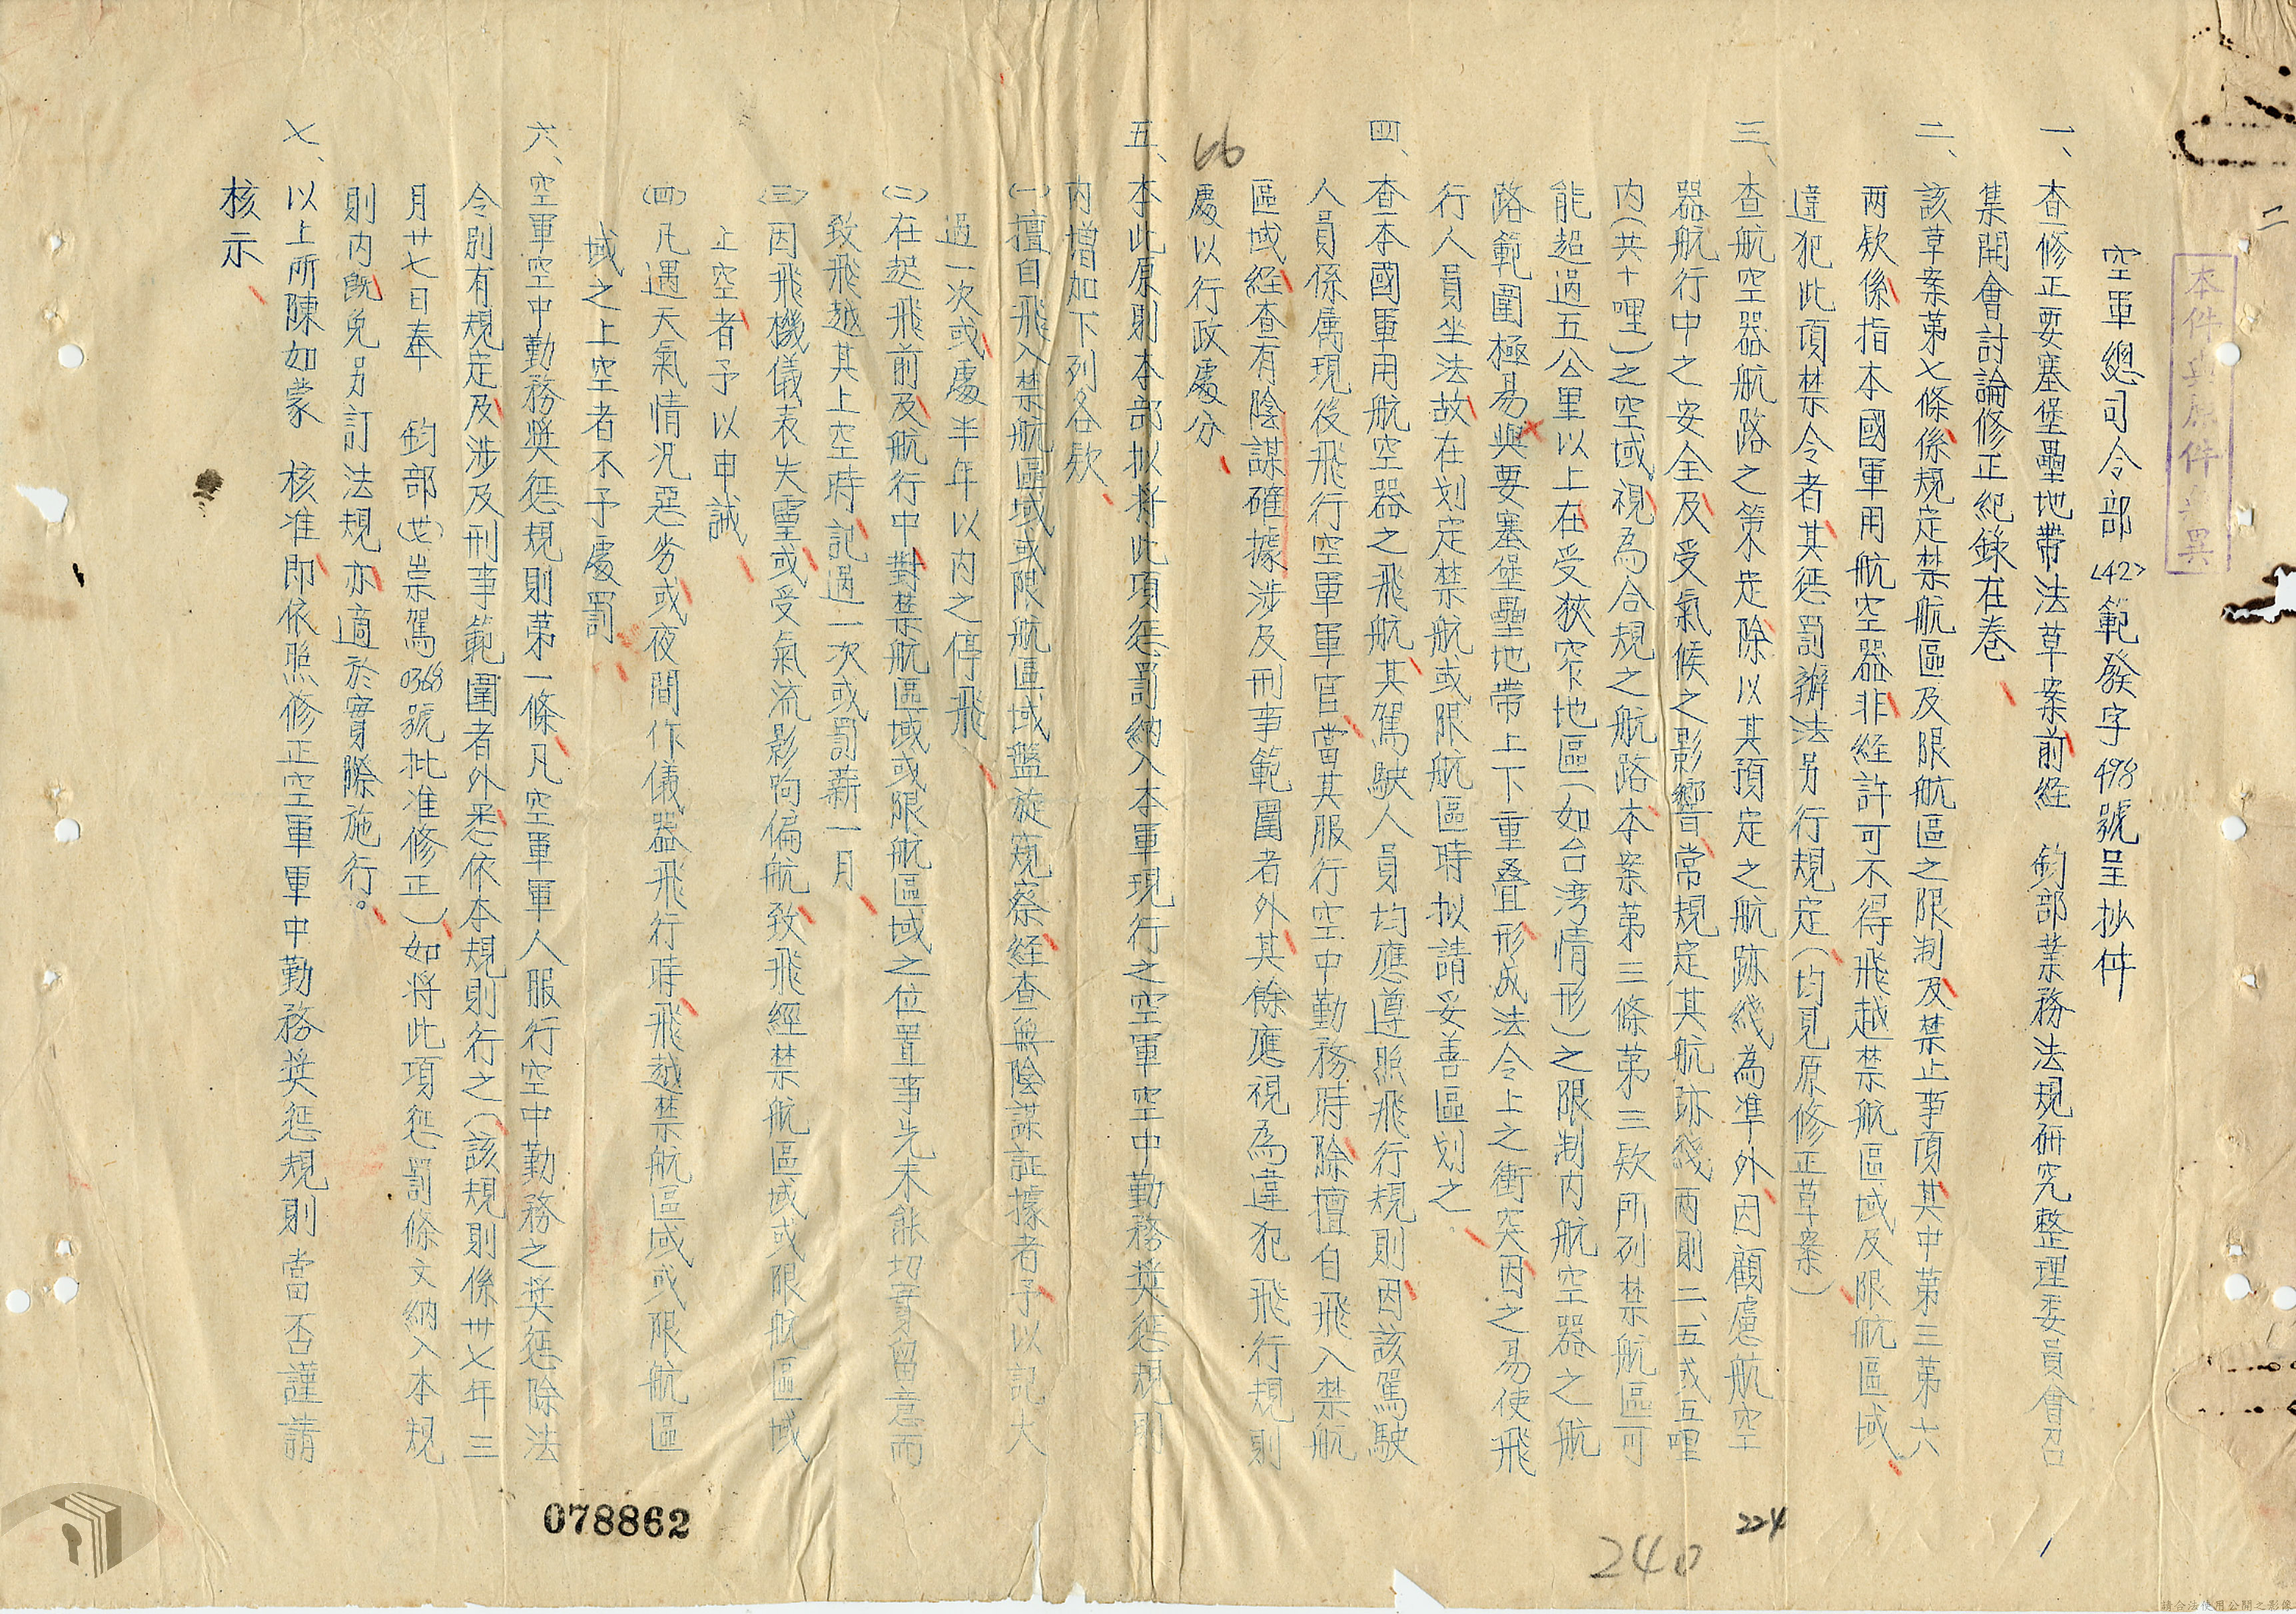 本件與原件無異
二
空軍總司令部(42)範發字498號呈抄件
一、查修正要塞堡壘地帶法草案前經 鈞部業務法規研究整理委員會召
集開會討論修正紀錄在卷
二、該草案第七條係規定禁航區及限航區之限制及禁止事項其中第三第六
兩欵係指本國軍用航空器非経許可不得飛越禁航區域及限航區域
違犯此項禁令者其惩罰辦法另行規定(均見原修正草案)
三、查航空器航路之策定除以其預定之航跡綫為準外因顧慮航空
器航行中之安全及受氣候之影響常規定其航跡綫兩側二、五或五哩
內(共十哩)之空域視為合規之航路本案第三條第三欵所列禁航區可
能超過五公里以上在受狹窄地區(如台湾情形)之限制內航空器之航
路範圍極易與要塞堡壘地帶上下重叠形成法令上之衝突因之易使飛
行人員坐法故在划定禁航或限航區時拟請妥善區划之
四、查本國軍用航空器之飛航其駕駛人員均應遵照飛行規則因該駕駛
人員係屬現役飛行空軍軍官當其服行空中勤務時除擅自飛入禁航
區域経查有陰謀確據涉及刑事範圍者外其餘應視為違犯飛行規則
處以行政處分
66
五、本此原則本部拟将此項惩罰納入本軍現行之空軍空中勤務奨惩規則
內增加下列各欵
(一)擅自飛入禁航區域或限航區域盤旋窺察経查無陰謀証據者予以記大
過一次或處半年以內之停飛
(二)在起飛前及航行中對禁航區域或限航區域之位置事先未能切實留意而
致飛越其上空時記過一次或罰薪一月
(三)因飛機儀表失靈或受氣流影响偏航致飛經禁航區域或限航區域
上空者予以申誡
(四)凡遇天氣情况惡劣或夜間作儀器飛行時飛越禁航區域或限航區
域之上空者不予處罰
六、空軍空中勤務奨惩規則第一條凡空軍軍人服行空中勤務之奨惩除法
令別有規定及涉及刑事範圍者外悉依本規則行之(該規則係卅七年三
月廿七日奉 鈞部(卅)崇駕0368號批准修正)如将此項惩罰條文納入本規
則內既免另訂法規亦適於實際施行。
七、以上所陳如蒙 核准即依照修正空軍軍中勤務奨惩規則當否謹請
核示
078862
224
240
請合法使用公開之影像